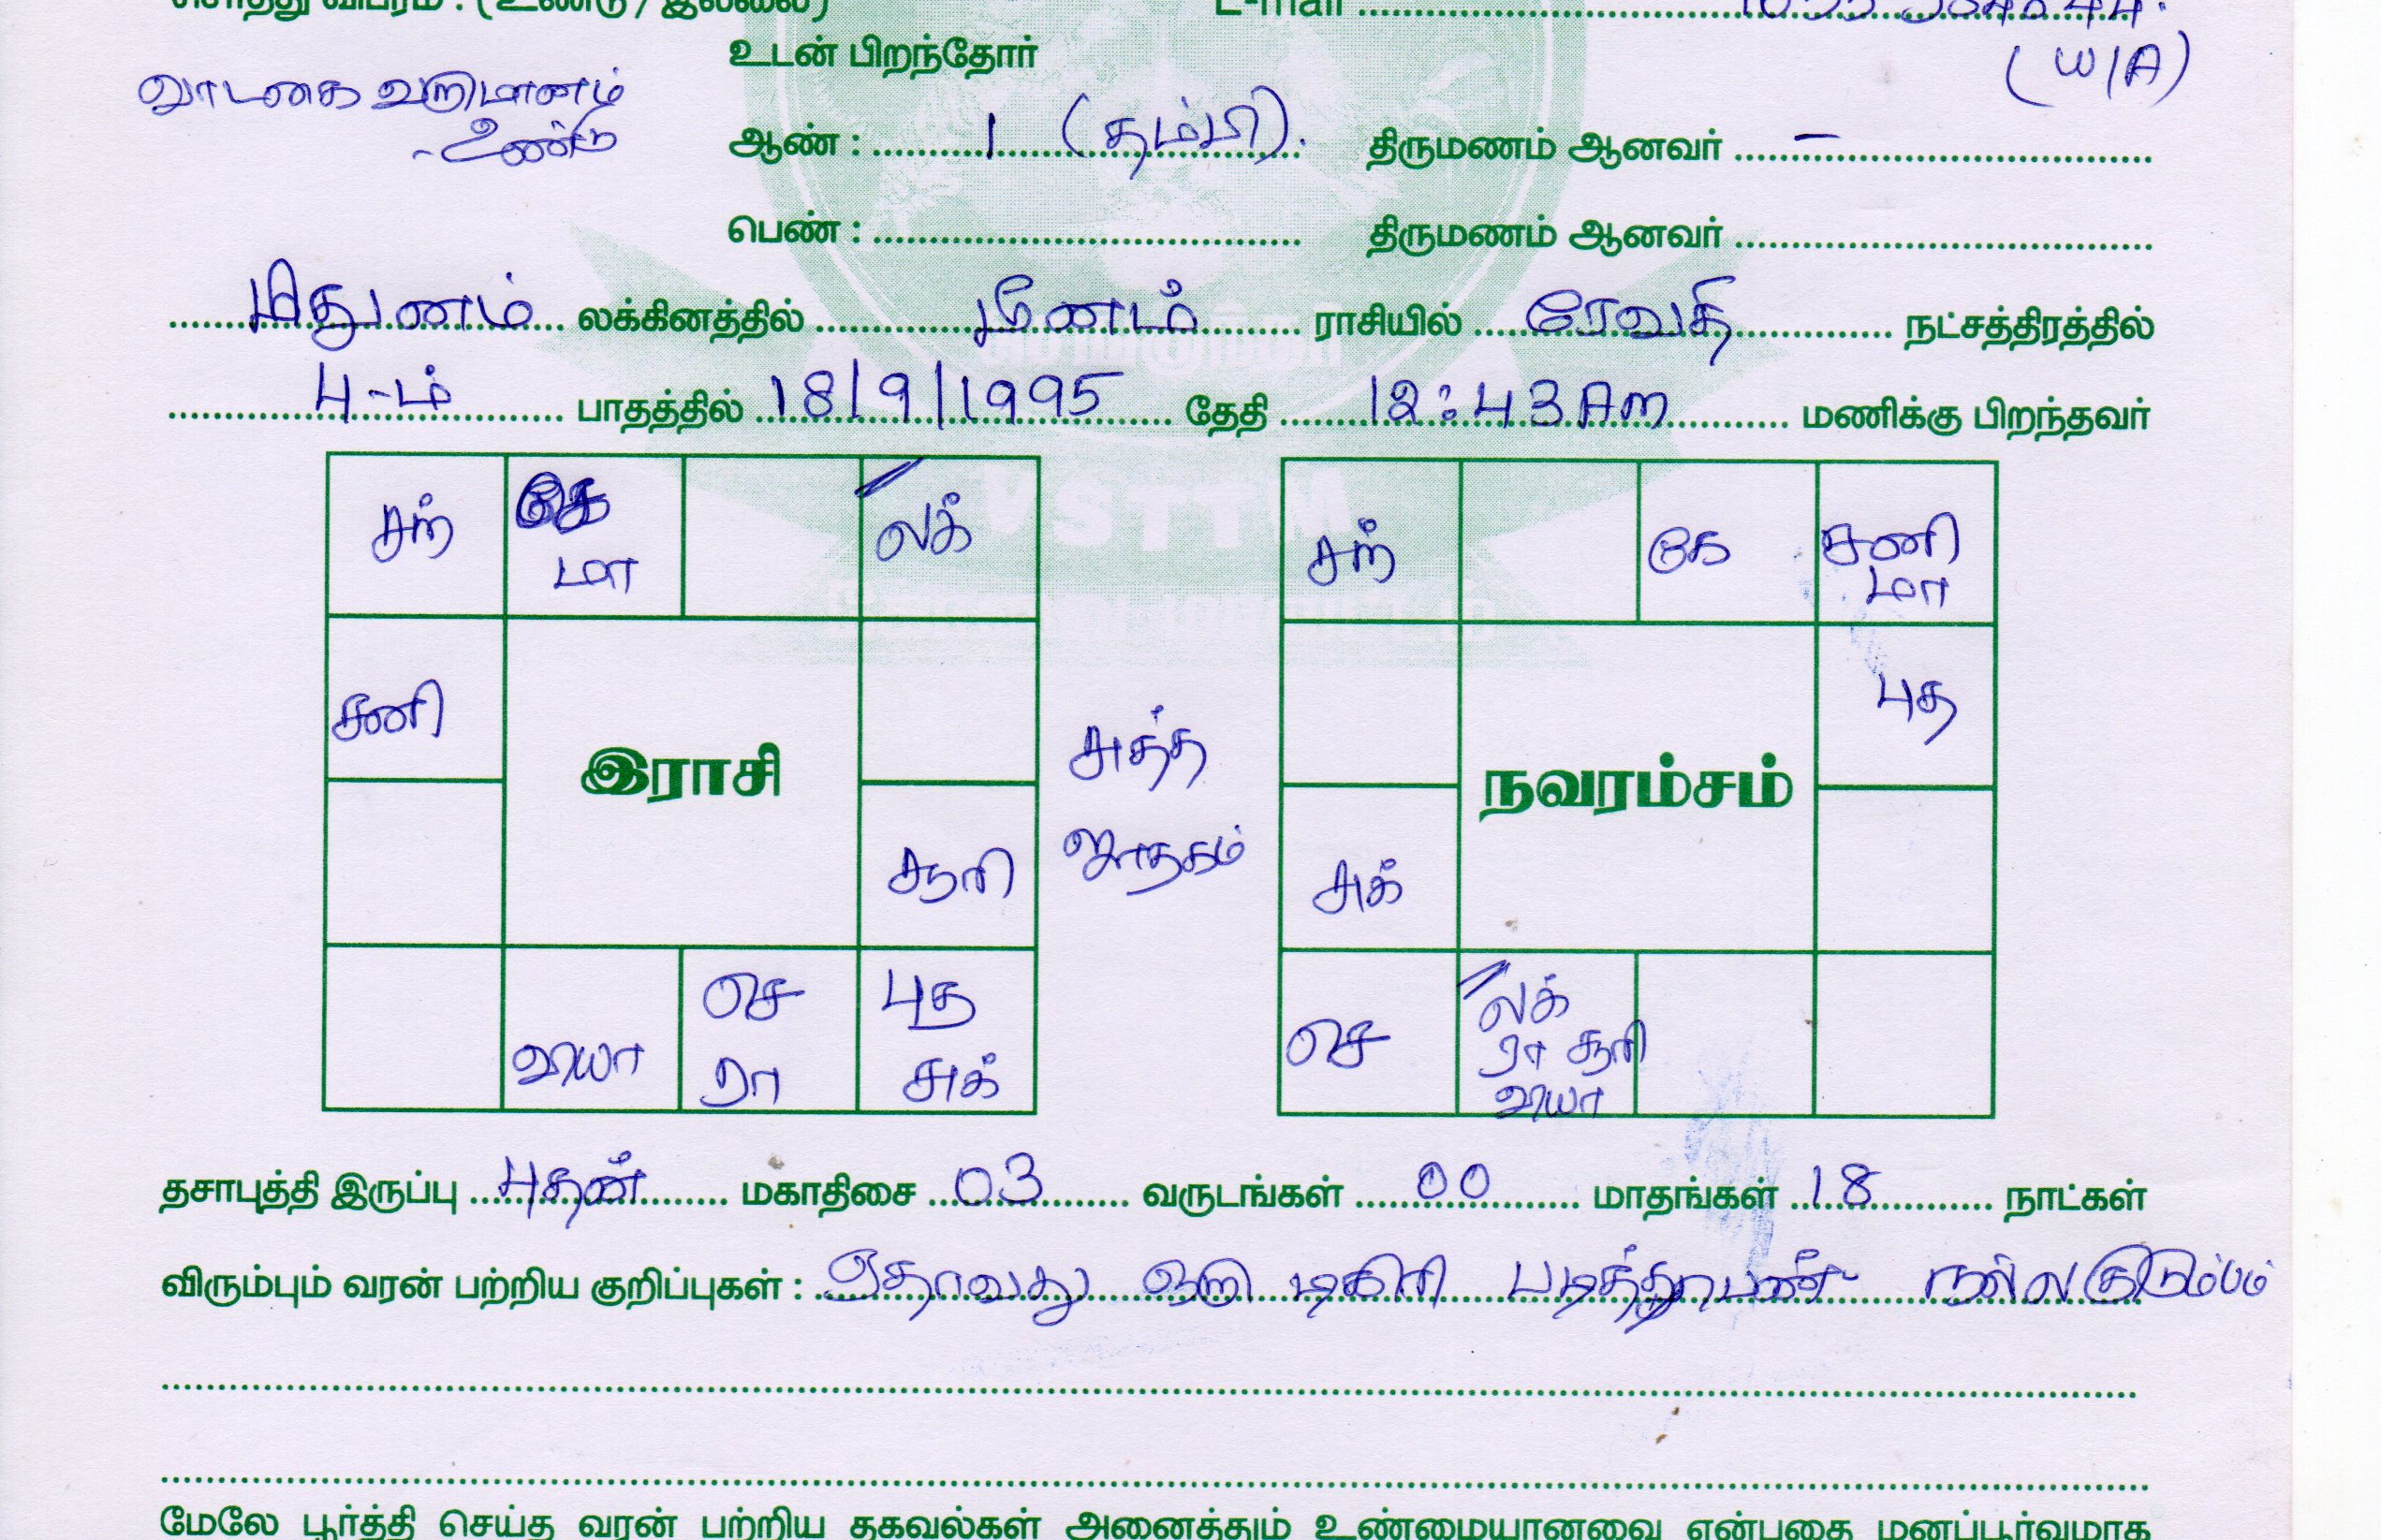 சொத்து விபரம் : ( உண்டு / இல்லை ) E-mail
உடன் பிறந்தோர் ( W/A )
வாடகை வருமானம்
- உண்டு
ஆண் : 1 ( தம்பி ). திருமணம் ஆனவர் –
பெண் : திருமணம் ஆனவர்
மிதுனம் லக்கினத்தில் மீனம் ராசியில் ரேவதி நட்சத்திரத்தில்
4-ம் பாதத்தில் 18/9/1995 தேதி 12:43 Am மணிக்கு பிறந்தவர்
சந் கே மா லக்
சனி
இராசி
சூரி
வியா செ ரா புத சுக்
சுத்த
ஜாதகம்
சந் கே சனி மா
புத
நவரம்சம்
சுக்
செ லக் ரா சூரி வியா
தசாபுத்தி இருப்பு புதன் மகாதிசை 03 வருடங்கள் 00 மாதங்கள் 18 நாட்கள்
விரும்பும் வரன் பற்றிய குறிப்புகள் : ஏதாவது ஒரு டிகிரி நல்ல குடும்பம்
மேலே பூர்த்தி செய்த வரன் பற்றிய தகவல்கள் அனைத்தும் உண்மையானவை என்பதை மனப்பூர்வமாக